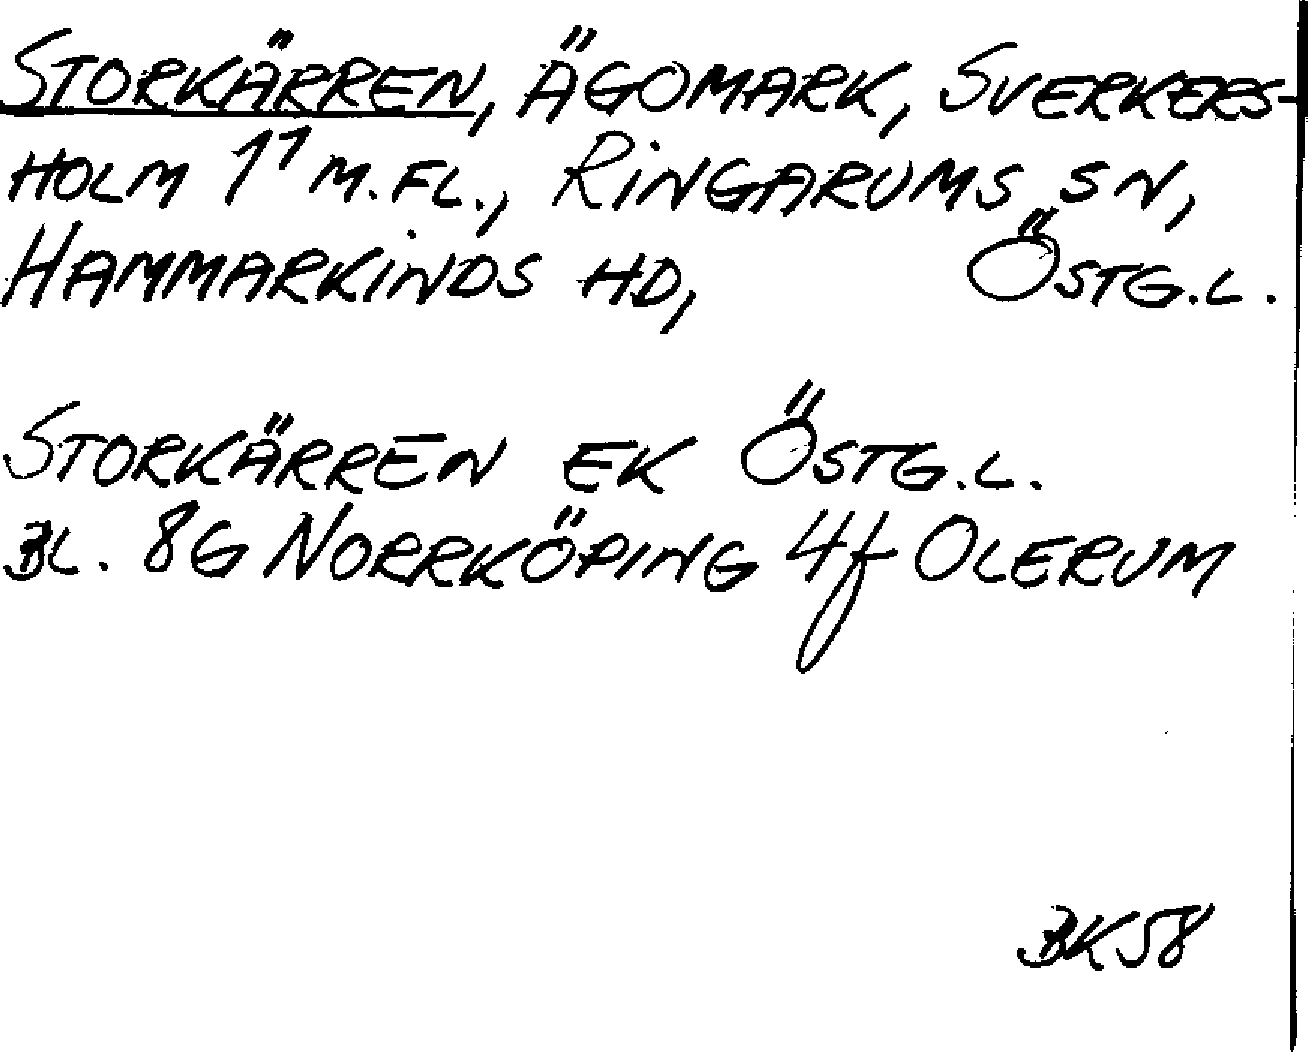 STORKÄRREN, ÄGOMARK, SVERKERS-
HOLM 1¹ M.FL., RINGARUMS SN,
HAMMARKINDS HD, ÖSTG.L.
STORKÄRREN EK ÖSTG.L.
BL. 8G NORRKÖPING 4f OLERUM
BK58